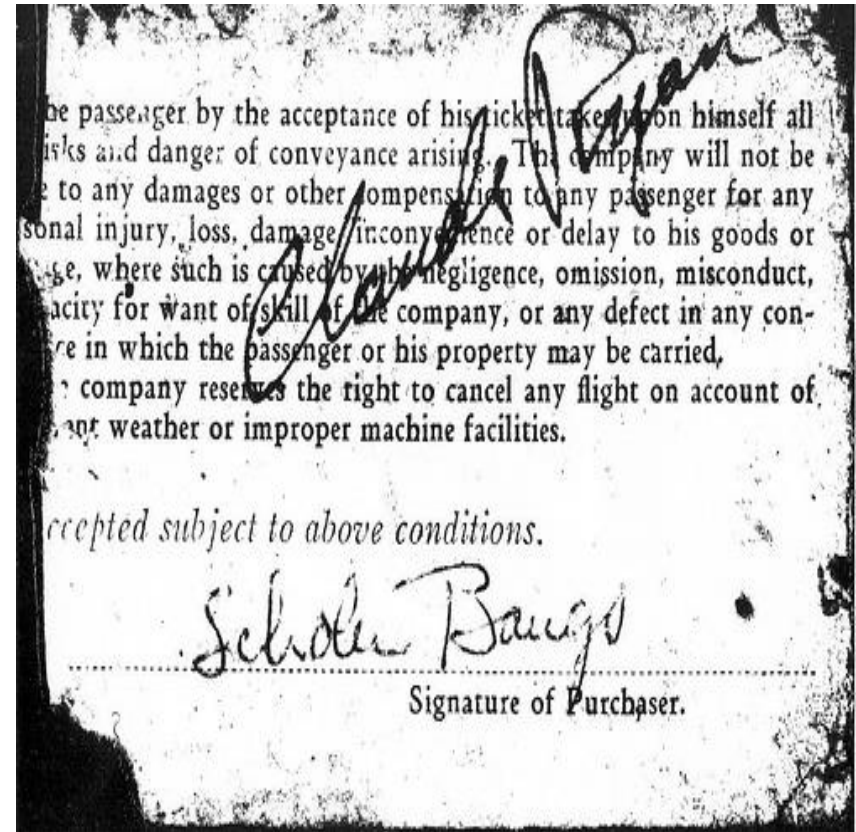 Claude Ryan
he passenger by the acceptance of his ticket takes upon himself all
isks and danger of conveyance arising. The company will not be
e to any damages or other compensation to any passenger for any
sonal injury, loss, damage, inconvenience or delay to his goods or
ge, where such is caused by the negligence, omission, misconduct,
acity for want of skill of the company, or any defect in any con-
ce in which the passenger or his property may be carried.
e company reserves the right to cancel any flight on account of
ent weather or improper machine facilities.
ccepted subject to above conditions.
Scholer Bangs
Signature of Purchaser.